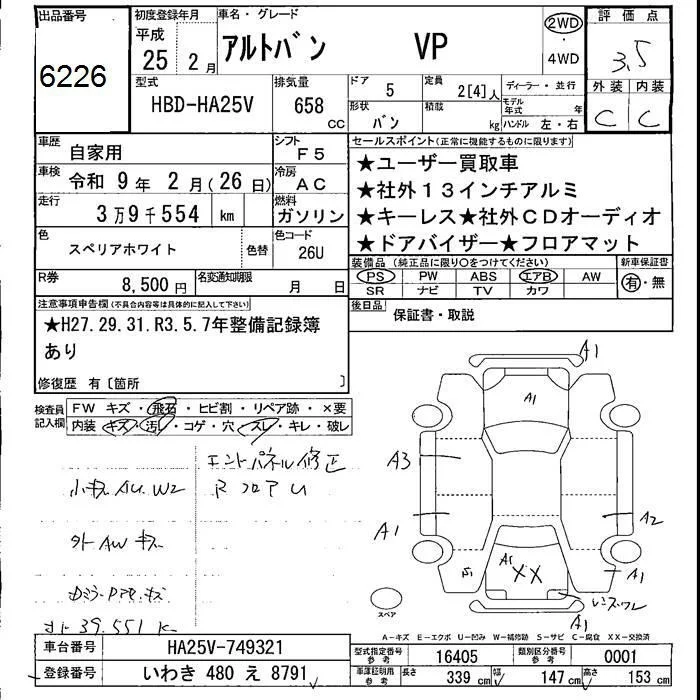 出品番号
6226
初度登録年月
平成
25年 2月
車名・グレード
アルトバン VP
2WD
・
4WD
評価点
3.5
外装 内装
C C
型式
HBD-HA25V
排気量
658 CC
ドア 5
定員 2[4]人
ディーラー・並行
形状 バン
積載 kg
モデル年式 年
ハンドル 左・右
車歴 自家用
シフト F5
車検 令和 9年 2月(26日)
冷房 AC
走行 3万9千554 km
燃料 ガソリン
色 スペリアホワイト 色替
色コード 26U
R券 8,500円
名変通知期限 月 日
セールスポイント(正常に機能するものに限ります)
★ユーザー買取車
★社外13インチアルミ
★キーレス★社外CDオーディオ
★ドアバイザー★フロアマット
装備品(純正品に限り○をつけてください)
PS PW ABS エアB AW
SR ナビ TV カワ
新車保証書
有・無
後日品 保証書・取説
注意事項申告欄(不具合内容等は具体的に記入して下さい)
★H27.29.31.R3.5.7年整備記録簿
あり
修復歴 有〔箇所 〕
検査員記入欄
FW キズ・飛石・ヒビ割・リペア跡・×要
内装 キズ・汚レ・コゲ・穴・スレ・キレ・破レ
エンドパネル修正
RフロアU
小キズ AU. W2
外AW キズ
39.551 K
A1
A1
A3
A1
A2
A1
XX
A1
A1
スペア
A-キズ E-エクボ U-凹み W-補修跡 S-サビ C-腐食 XX-交換済
車台番号 HA25V-749321
登録番号 いわき 480 え 8791
型式指定番号 参考 16405
類別区分番号 参考 0001
車庫証明用 参考 長さ 339cm 幅 147cm 高さ 153cm